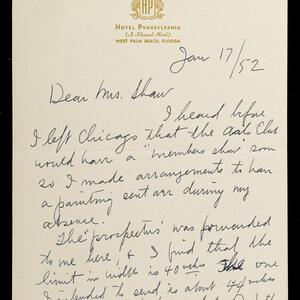 HP
HOTEL PENNSYLVANIA
(A Kloeppel Hotel)
WEST PALM BEACH, FLORIDA
Jan 17/52
Dear Mrs. Shaw
I heard before
I left Chicago that the Arts Club
would have a "members show" son
so I made arrangements to have
a painting sent over during my
absence.
The "prospectus" was forwarded
to me here, & I find that the
limit in width is 40 inches The one
I intended to send is about 44 inches